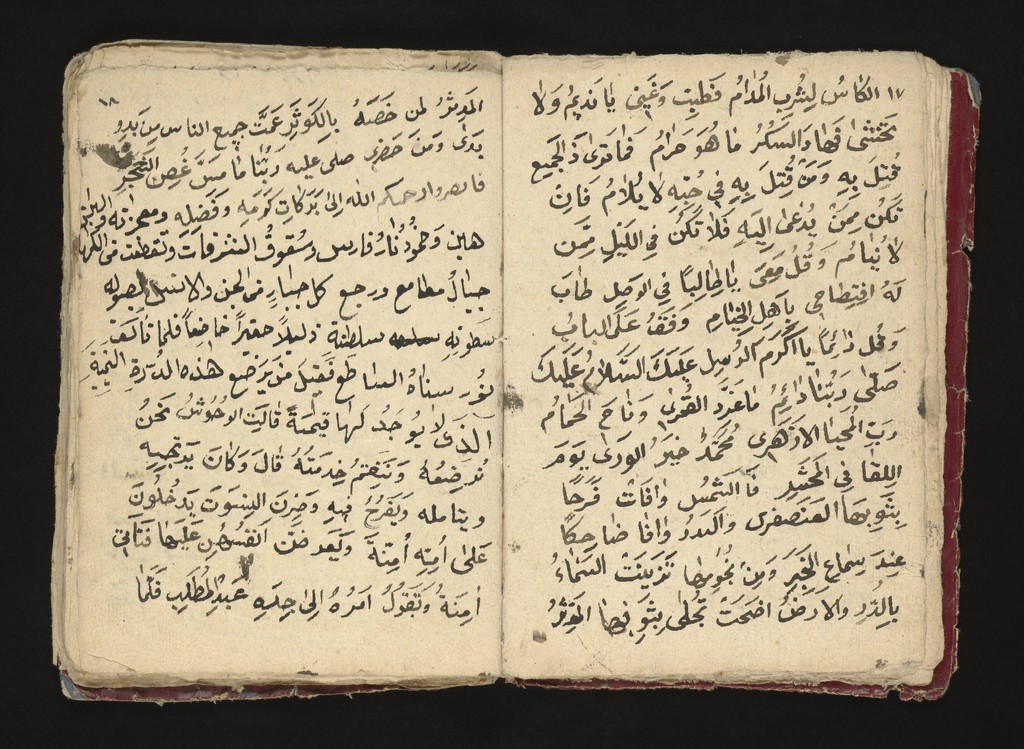 ١٧ الكَاسُ لِشُربِ المُدامُ فَطِيبَ وَغَنِى يا نَدِيمُ وَلا
تَختَشى فَهٰا ذالسَكْرُ مٰا هُوَ حَرٰامُ فَمٰا تَرىٰ ذالجَمِيع
قُتِلَ بِهِ وَمَنْ قُتِلَ بِهِ فى حُبِّهِ لٰا يُلامُ فَاِن
تَكُن مِمَنْ يُدْعىٰ اِليَهِ فَلا تَكُن فى اللَيْلِ مِمَن
لاٰ يُنٰامُ وَقُل مَعِى يٰا طٰالِبًا فى الوَصِل طٰابَ
لَهُ افتِطاحى يٰا هِلِ الخِيٰامِ وَقفُ عَلَى البٰابُ
وَقُل دٰائِمًا يٰا اَكْرَم الرُسِل عَلَيكَ السَّلامُ عَلَيكَ
صَلىٰ رَبُنٰا دٰائِمُ مٰا غَرَّدَ القُمرى وَنٰاحَ الحَمٰامُ
رَبَّ المُحيٰا الازْهَرِى مُحَمَّدُ خَيرُ الوَرىٰ يَومَ
اللِقٰا فى المَحْشَرِ فَا الشَمْسُ وٰافَاتْ فَرِحًا
بِثَوبِهَا العُنصُفرى وَالبَدرُ وٰافٰا ضٰاحِكًا
عِندَ سِمٰاع الخَبَرِ وَمِن نُجُومِهٰا تَزَيَنَتْ السَمٰاءُ
بِالدُرِ وَالاَرضُ اضْحَتْ تُجْلى بِثَوبِهٰا
١٨
المَدِثرُ لمن خَصَهُ بِالكَوثَرِ عَمَتْ جَمِيع الناس مِن بَدوٍ
بَدىٰ وَمَن حَضَرِ صَلى عَليه رَبُنٰا مٰا مَسَ غُصن الشَجَرِ
رحمكم الله الىٰ بَرَكاتِ كَرَمِهِ وَفَضلِهِ ومعجزاته
وَخُمُودُ نَارُ فارس وسُقوفُ الشرفات وتَقَطعت من الكهان
حِبالُ مطامع ورجع كل جبارٍ من الجن والانس لصوله
سَطوتِهِ سلطنته ذليلاً حقيراً خاضِعاً فلما تألقَ
نُور سناهُ الساطع فَقيلَ من يَرضع هٰذه الدُرةِ اليَتِيمَةِ
الَّذى لٰا يُوجَدُ لَهٰا قيمَةً قٰالَتِ الوُحُوشُ نَحنُ
نُرضِعُهُ وَنَغتَنِمُ خِدمَتَهُ قٰالَ وَكٰانَ
وَيَفرَحُ فيهِ وَصِرنَ النِسوَتَ يَدخُلُونَ
عَلىٰ اُمِهِ اٰمِنَةَ وَيَعرضنَ انفُسَهُن عَلَيهٰا فَتَأتى
اٰمِنَةُ وَتَقُولُ اَمرُهُ اِلىٰ جِدِهِ عَبدِ المُطَلِب فَلَمٰا